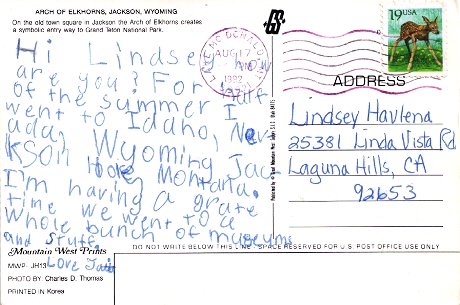 ARCH OF ELKHORNS, JACKSON, WYOMING
On the old town square in Jackson the Arch of Elkhorns creates
a symbolic entry way to Grand Teton National Park.
Hi Lindsey how
are you? For half
of the summer I
went to Idaho, Nev
ada, Wyoming, Jac
kson hole, Montana.
I'm having a grate
time we went to a
whole bunch of museums
and stuff.
Love
Mountain West Prints
MWP- JH13
PHOTO BY: Charles D. Thomas
PRINTED IN Korea
AUG 17
1992
19 USA
ADDRESS
Lindsey Havlena
25381 Linda Vista Rd
Laguna Hills, CA
92653
DO NOT WRITE BELOW THIS LINE - SPACE RESERVED FOR U.S. POST OFFICE USE ONLY